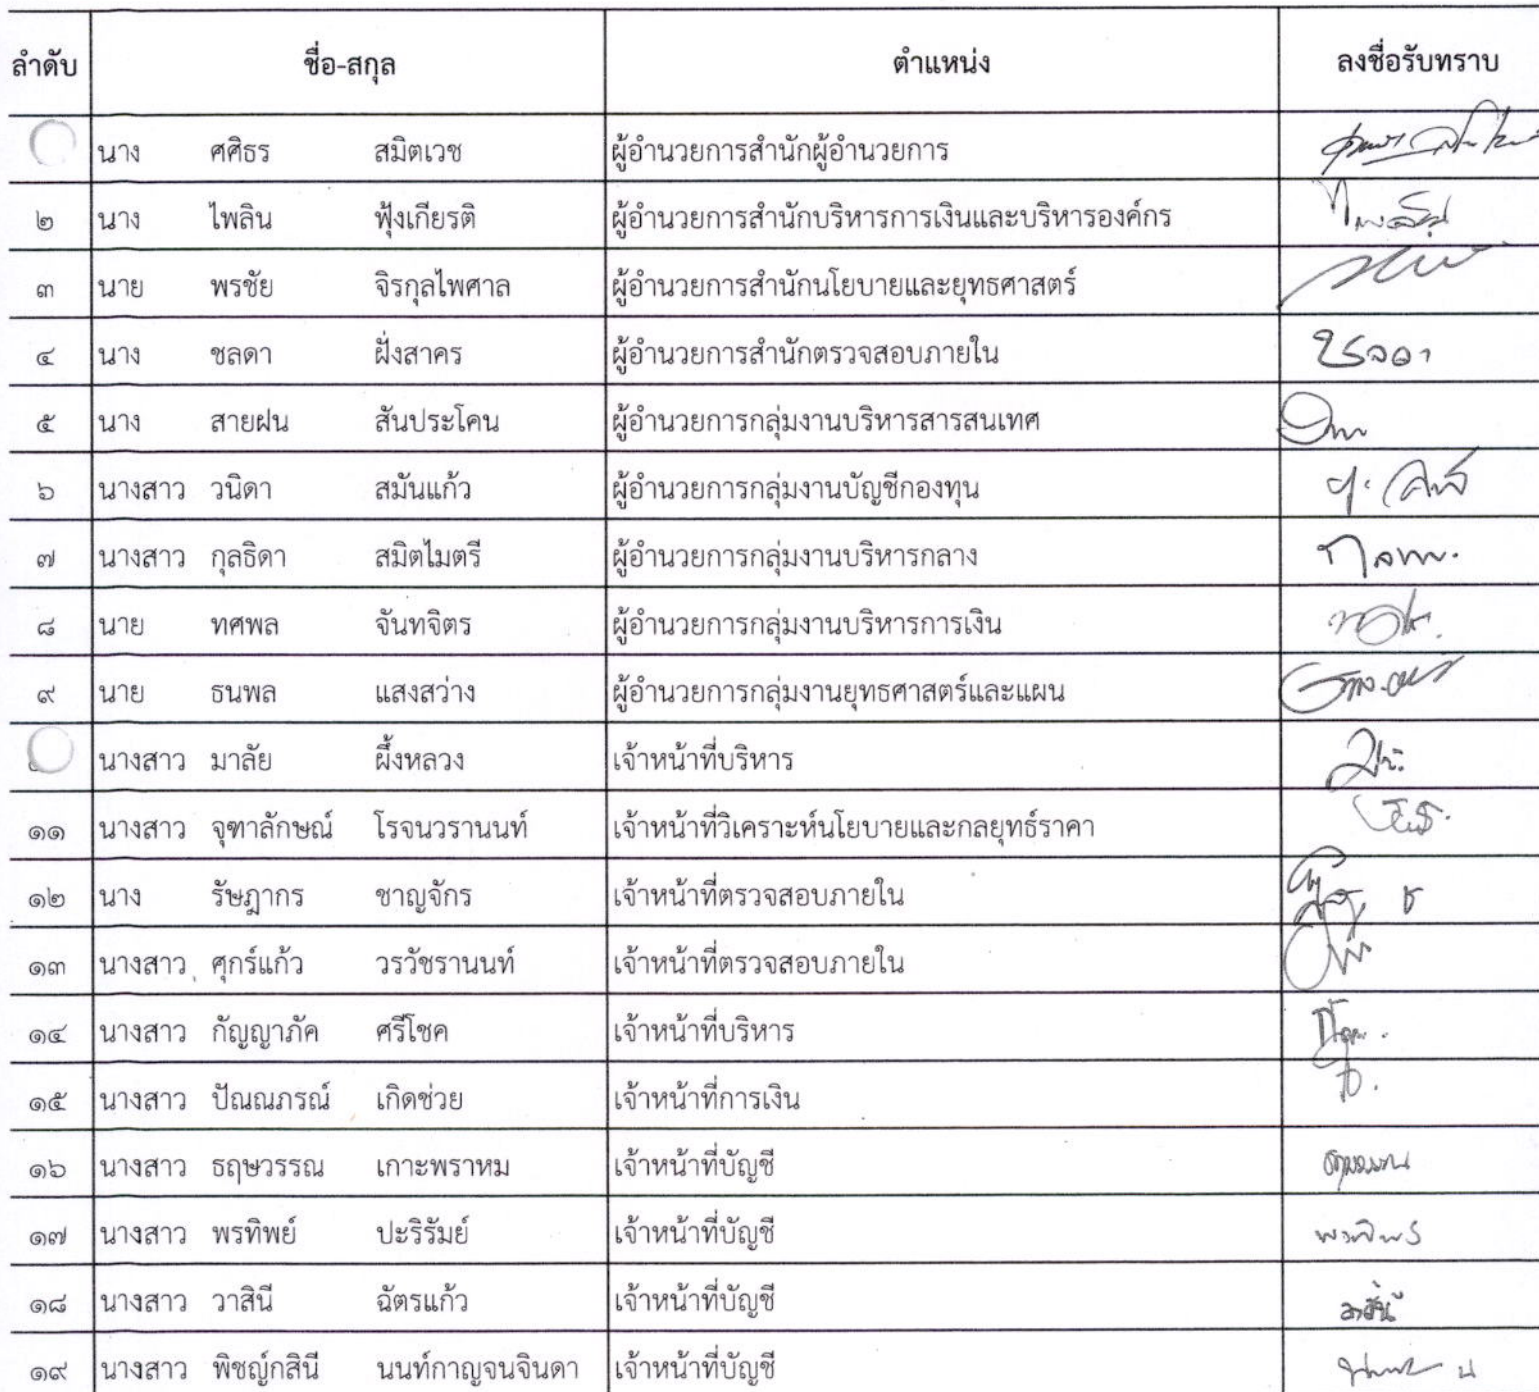 ลำดับ ชื่อ-สกุล ตำแหน่ง ลงชื่อรับทราบ
นาง ศศิธร สมิตเวช ผู้อำนวยการสำนักผู้อำนวยการ
๒ นาง ไพลิน ฟุ้งเกียรติ ผู้อำนวยการสำนักบริหารการเงินและบริหารองค์กร
๓ นาย พรชัย จิรกุลไพศาล ผู้อำนวยการสำนักนโยบายและยุทธศาสตร์
๔ นาง ชลดา ฝั่งสาคร ผู้อำนวยการสำนักตรวจสอบภายใน ชลดา
๕ นาง สายฝน สันประโคน ผู้อำนวยการกลุ่มงานบริหารสารสนเทศ
๖ นางสาว วนิดา สมันแก้ว ผู้อำนวยการกลุ่มงานบัญชีกองทุน
๗ นางสาว กุลธิดา สมิตไมตรี ผู้อำนวยการกลุ่มงานบริหารกลาง
๘ นาย ทศพล จันทจิตร ผู้อำนวยการกลุ่มงานบริหารการเงิน
๙ นาย ธนพล แสงสว่าง ผู้อำนวยการกลุ่มงานยุทธศาสตร์และแผน
นางสาว มาลัย ผึ้งหลวง เจ้าหน้าที่บริหาร
๑๑ นางสาว จุฑาลักษณ์ โรจนวรานนท์ เจ้าหน้าที่วิเคราะห์นโยบายและกลยุทธ์ราคา
๑๒ นาง รัษฎากร ชาญจักร เจ้าหน้าที่ตรวจสอบภายใน
๑๓ นางสาว ศุกร์แก้ว วรวัชรานนท์ เจ้าหน้าที่ตรวจสอบภายใน
๑๔ นางสาว กัญญาภัค ศรีโชค เจ้าหน้าที่บริหาร
๑๕ นางสาว ปัณณภรณ์ เกิดช่วย เจ้าหน้าที่การเงิน
๑๖ นางสาว ธฤษวรรณ เกาะพราหม เจ้าหน้าที่บัญชี
๑๗ นางสาว พรทิพย์ ปะริรัมย์ เจ้าหน้าที่บัญชี
๑๘ นางสาว วาสินี ฉัตรแก้ว เจ้าหน้าที่บัญชี
๑๙ นางสาว พิชญ์กสินี นนท์กาญจนจินดา เจ้าหน้าที่บัญชี